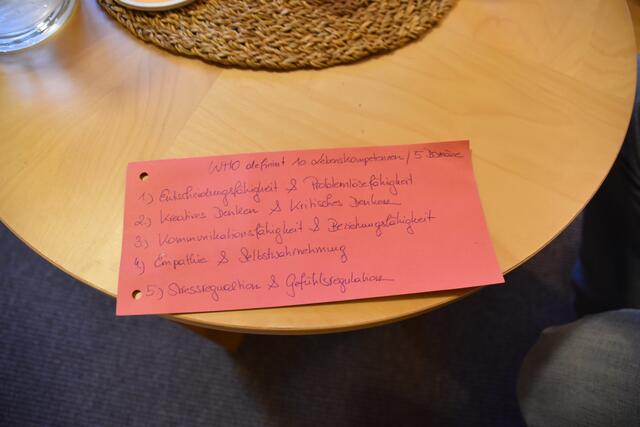 WHO definiert 10 Lebenskompetenzen / 5 Domäne
1.) Entscheidungsfähigkeit & Problemlösefähigkeit
2.) Kreatives Denken & Kritisches Denken
3.) Kommunikationsfähigkeit & Beziehungsfähigkeit
4.) Empathie & Selbstwahrnehmung
5.) Stressregualtion & Gefühlsregulation